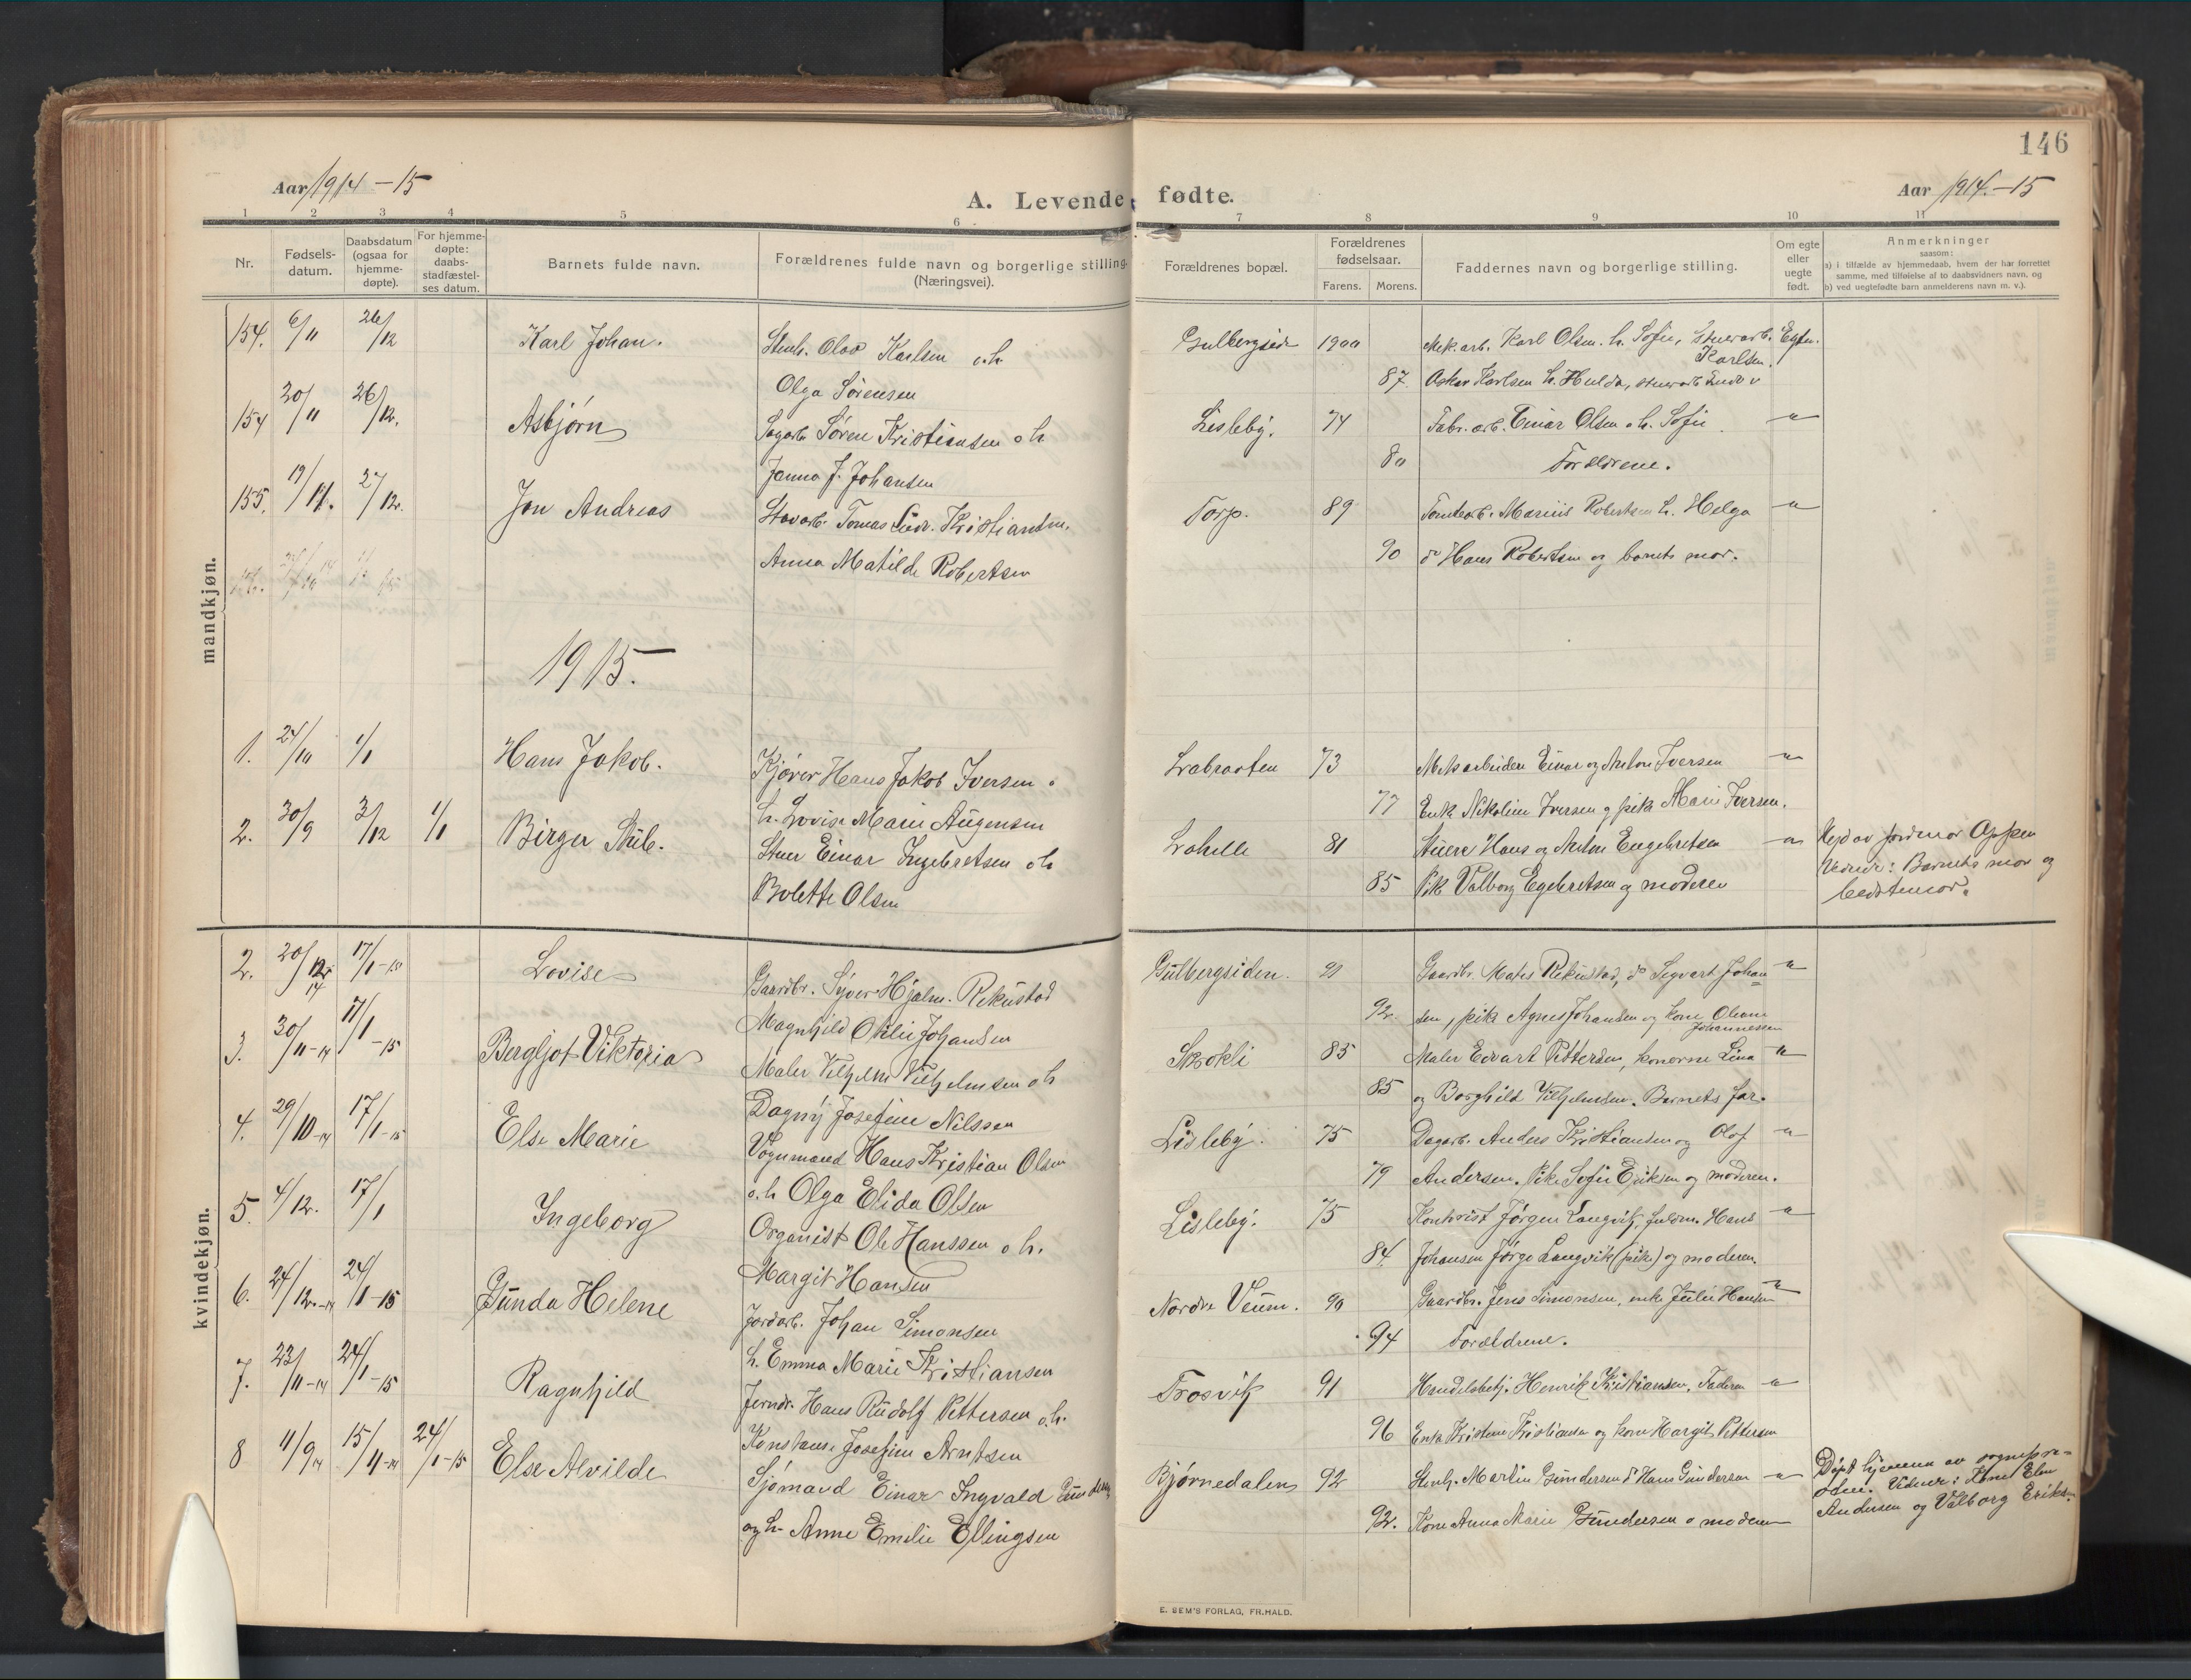 146
Aar 1914-15
A. Levende fødte.
Aar 1914.-15
1 2 3 4 5 6 7 8 9 10 11
Nr.
Fødsels-
datum.
Daabsdatum
(ogsaa for
hjemme-
døpte).
For hjemme-
døpte:
daabs-
stadfæstel-
ses datum.
Barnets fulde navn.
Forældrenes fulde navn og borgerlige stilling
(Næringsvei).
Forældrenes bopæl.
Forældrenes
fødselsaar.
Farens. Morens.
Faddernes navn og borgerlige stilling.
Om egte
eller
uegte
født.
Anmerkninger
saasom:
a) i tilfælde av hjemmedaab, hvem der har forrettet
samme, med tilføielse af to daabsvidners navn, og
b) ved uegtefødte barn anmelderens navn m. v.).
mandkjøn.
154. 6/11 26/12 Karl Johan. Stenh. Olav Karlsen o. h. Gulbergsid 1900 Mek. arb. Karl Olsen. h. Sofie, Egte.
Karlsen.
Olga Sørensen 87. Oskar Karlsen h. Hulda,
154 20/11 26/12. Asbjørn Sagarb. Søren Kristiansen o h Lisleby. 74 Fabr. arb. Einar Olsen o h. Sofie -"-
Janna J. Johansen 80 Forældrene.
155. 19/11. 27/12. Jon Andreas Stavarb. Tomas Kristiansen. Torp. 89 Tomtearb. Marius Robertsen h. Helga -"-
Anna Matilde Robertsen 90 do Hans Robertsen og barnets mor.
1915.
1. 24/10 1/1 Hans Jakob. Kjører Hans Jakob Iversen o Labraaten 73 Mekarbeider Einar og Anton Iversen -"-
h. Lovise Marie Augensen 77 Enke Nikoline Iversen og pike Marie Iversen.
2. 30/9 3/12 1/1 Birger Stub. Stuer Einar Ingebretsen o h Lahelle 81 Stuere Hans og Anton Engebretsen -"- Hjd av jordmor Oppen
Bolette Olsen 85 Pik Valborg Egebretsen og moderen Vidner: Barnets mor og
bedstemor.
kvindekjøn.
2. 20/12 14 17/1-15 Lovise Gaardbr. Syver Hjalm. Rekustad Gulbergsiden. 91 Gaardbr. Mates Rekustad, do Sigvart Johan= -"-
Magnhild Otilie Johansen 92. sen, pike Agnes Johansen og kone Oleane
Johannessen
3. 30/11-14 17/1-15 Bergljot Viktoria Maler Vilhelm Vilhelmsen o h Skokli 85 Maler Edvart Pettersen, konerne Lina -"-
Dagny Josefine Nilssen 85 og Borghild Vilhelmsen. Barnets far.
4. 29/10-14 17/1-15 Else Marie Vognmand Hans Kristian Olsen Lisleby. 75 Dagarb. Anders Kristiansen og Olaf -"-
o. h Olga Elida Olsen 79 Andersen. Pike Sofie Eriksen og moderen.
5. 4/12. 17/1 Ingeborg Organist Ole Hanssen o h. Lisleby. 75 Kontorist Jørgen Langvik, Hans -"-
Margit Hansen 84. Johansen Jørga Langvik (pike) og moderen.
6. 24/12-14 24/1-15 Gunda Helene Jordarb. Johan Simonsen Nordre Veum. 90 Gaardbr. Jens Simonsen, enke Julie Hansen -"-
h. Emma Marie Kristiansen 94 Forældrene.
7. 23/11-14 24/1-15 Ragnhild Jerndr. Hans Rudolf Pettersen o. h. Trosvik 91 Handelsbetj. Henrik Kristiansen, Faderen -"-
Konstanse Josefine Arntsen 96 Enke Kristine Kristiansen og kone Margit Pettersen
8 11/9 14 15/11-14 24/1-15 Else Alvilde Sjømand Einar Ingvald Gundersen Bjørnedalen 92 Stenh. Martin Gundersen do Hans Gundersen -"- Døpt hjemme av sognepre=
sten. Vidner: Elen
og h. Anne Emelie Ellingsen 92. Kone Anna Marie Gundersen o moderen Andersen og Valborg Eriksen.
E. SEM'S FORLAG, FR.HALD.